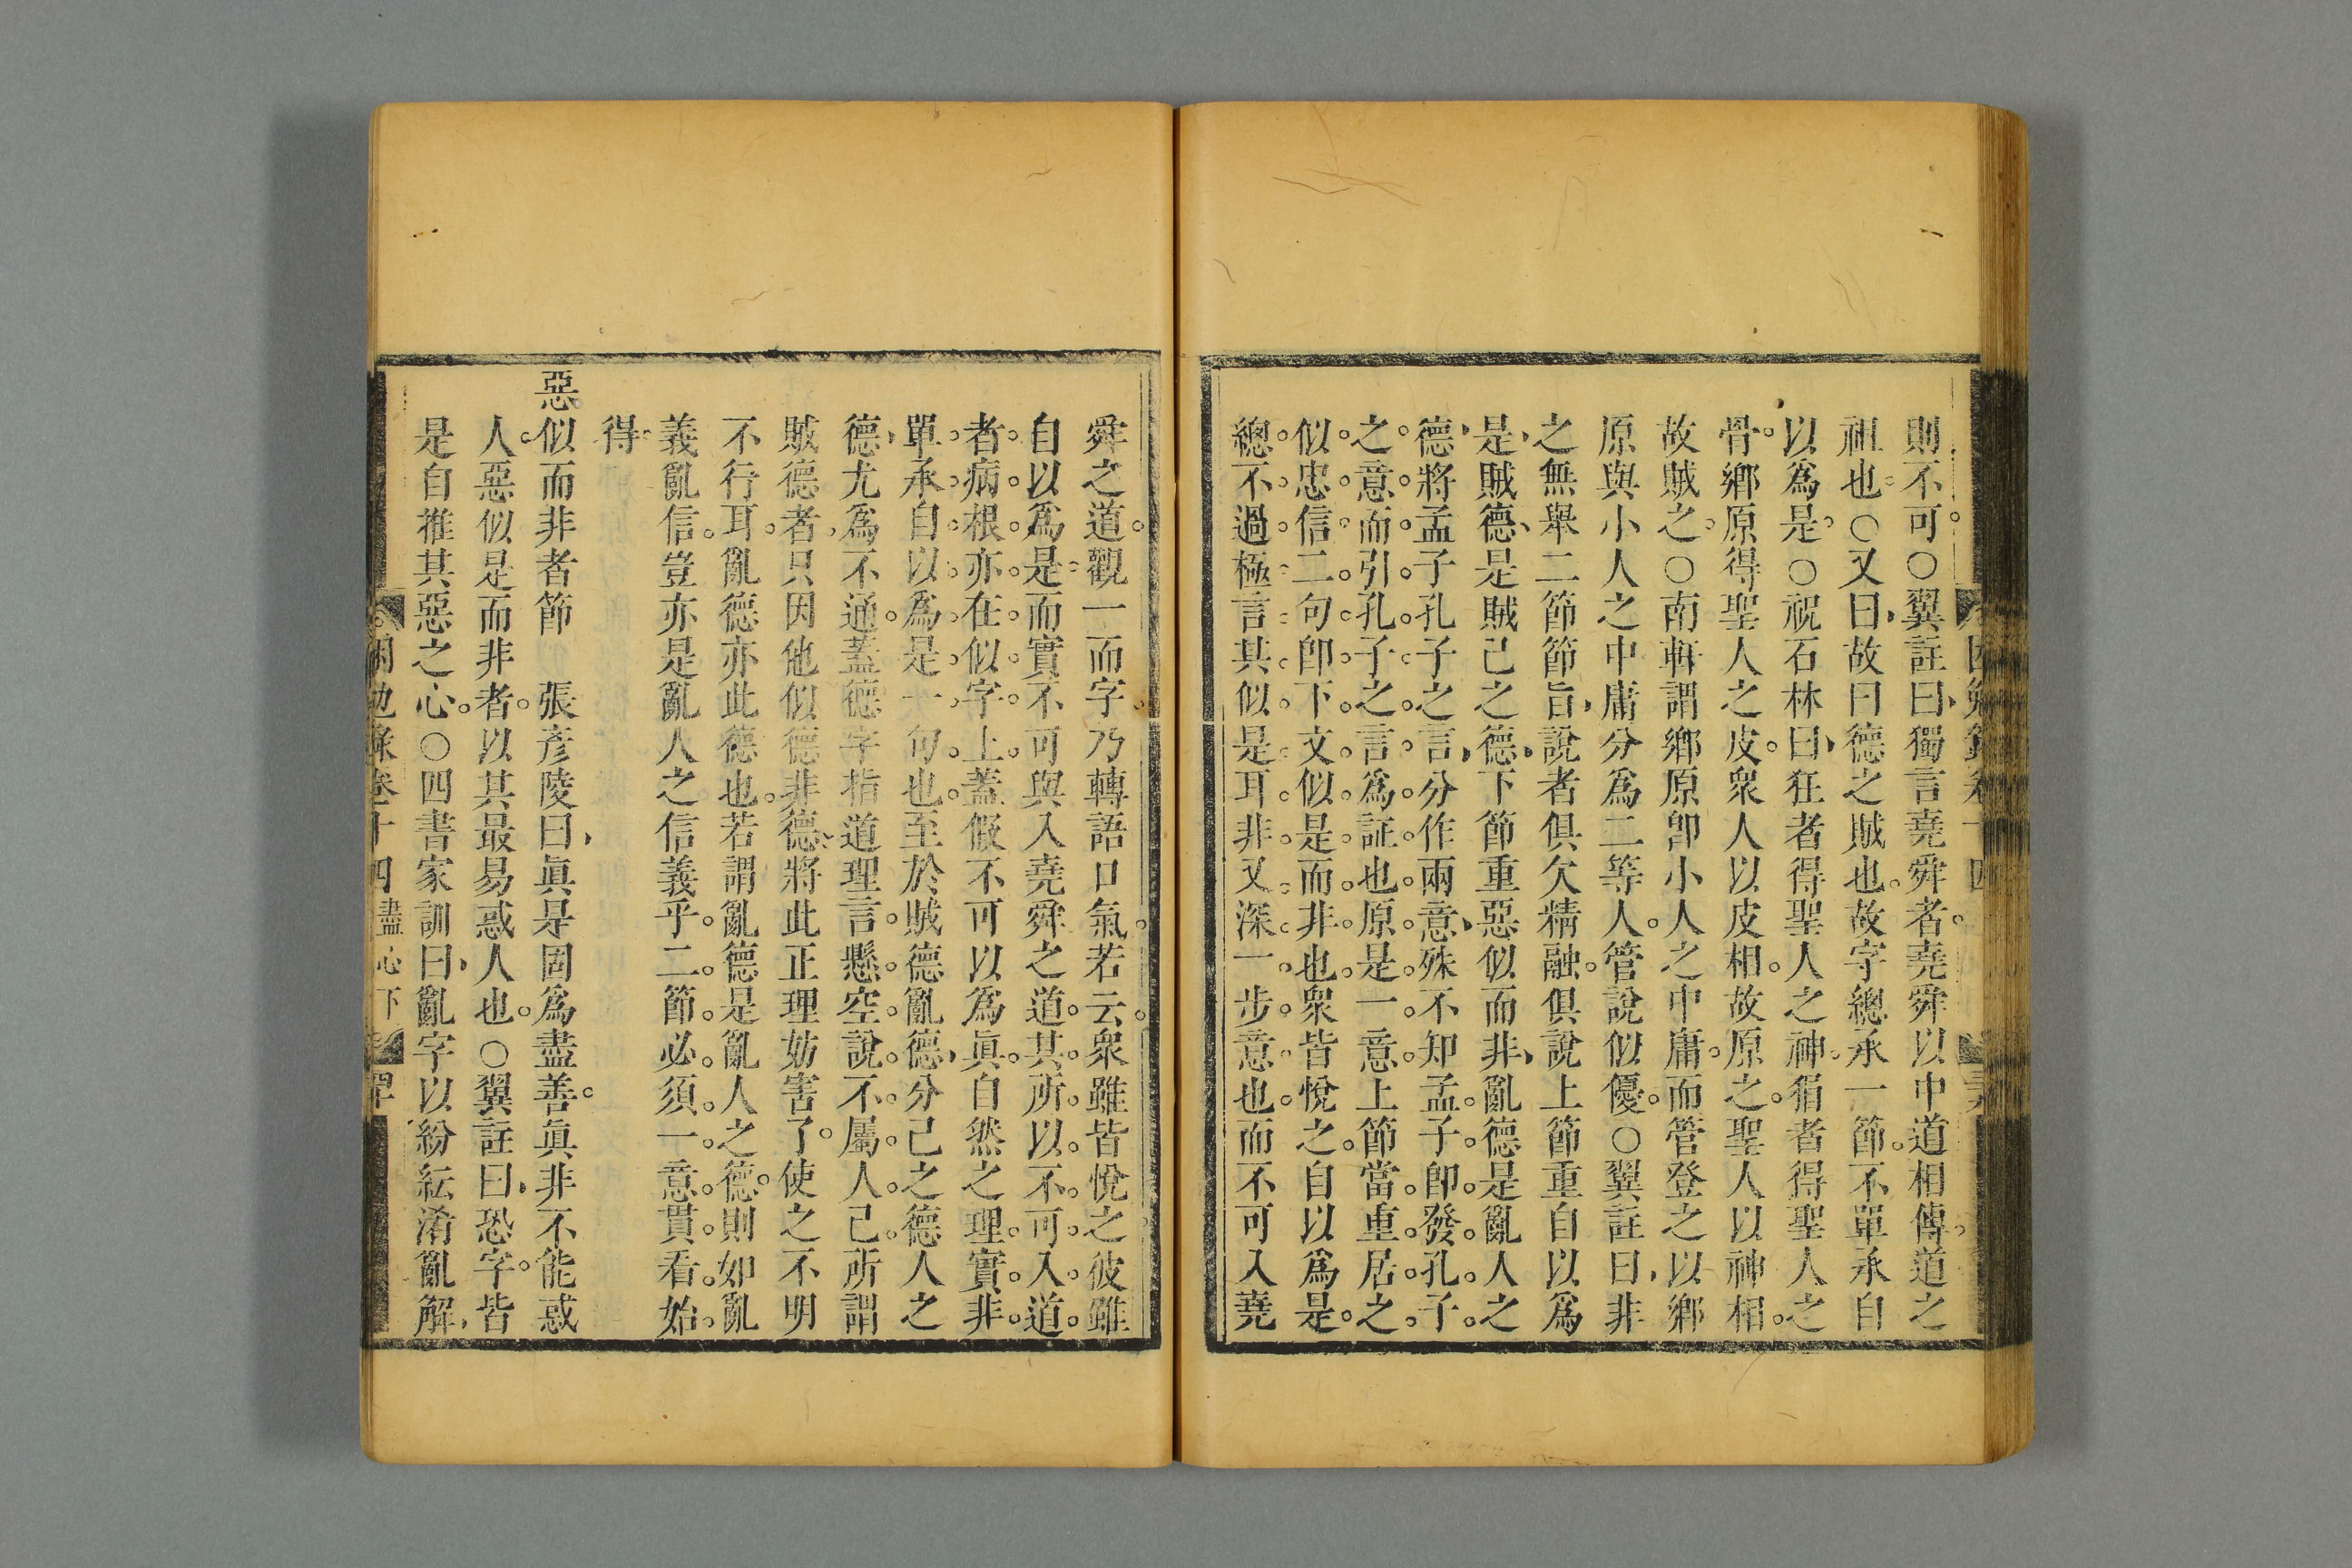 則不可○翼註曰獨言堯舜者堯舜以中道相傳道之
祖也○又曰故曰德之賊也故字總承一節不單承自
以為是○祝石林曰狂者得聖人之神狷者得聖人之
骨鄉原得聖人之皮衆人以皮相故原之聖人以神相
故賊之○南軒謂鄉原卽小人之中庸而管登之以鄉
原與小人之中庸分為二等人管說似優○翼註曰非
之無舉二節節旨說者俱欠精融俱說上節重自以為
是賊德是賊己之德下節重惡似而非亂德是亂人之
德將孟子孔子之言分作兩意殊不知孟子卽發孔子
之意而引孔子之言為証也原是一意上節當重居之
似忠信二句卽下文似是而非也衆皆悅之自以為是
總不過極言其似是耳非又深一步意也而不可入堯
舜之道觀一而字乃轉語口氣若云衆雖皆悅之彼雖
自以為是而實不可與入堯舜之道其所以不可入道
者病根亦在似字上蓋假不可以為眞自然之理實非
單承自以為是一句也至於賊德亂德分己之德人之
德尤為不通蓋德字指道理言懸空說不屬人己所謂
賊德者只因他似德非德將此正理妨害了使之不明
不行耳亂德亦此德也若謂亂德是亂人之德則如亂
義亂信豈亦是亂人之信義乎二節必須一意貫看始
得
惡似而非者節 張彥陵曰眞是固為盡善眞非不能惑
人惡似是而非者以其最易惑人也○翼註曰恐字皆
是自推其惡之心○四書家訓曰亂字以紛紜淆亂解
勉錄卷十四 盡心下